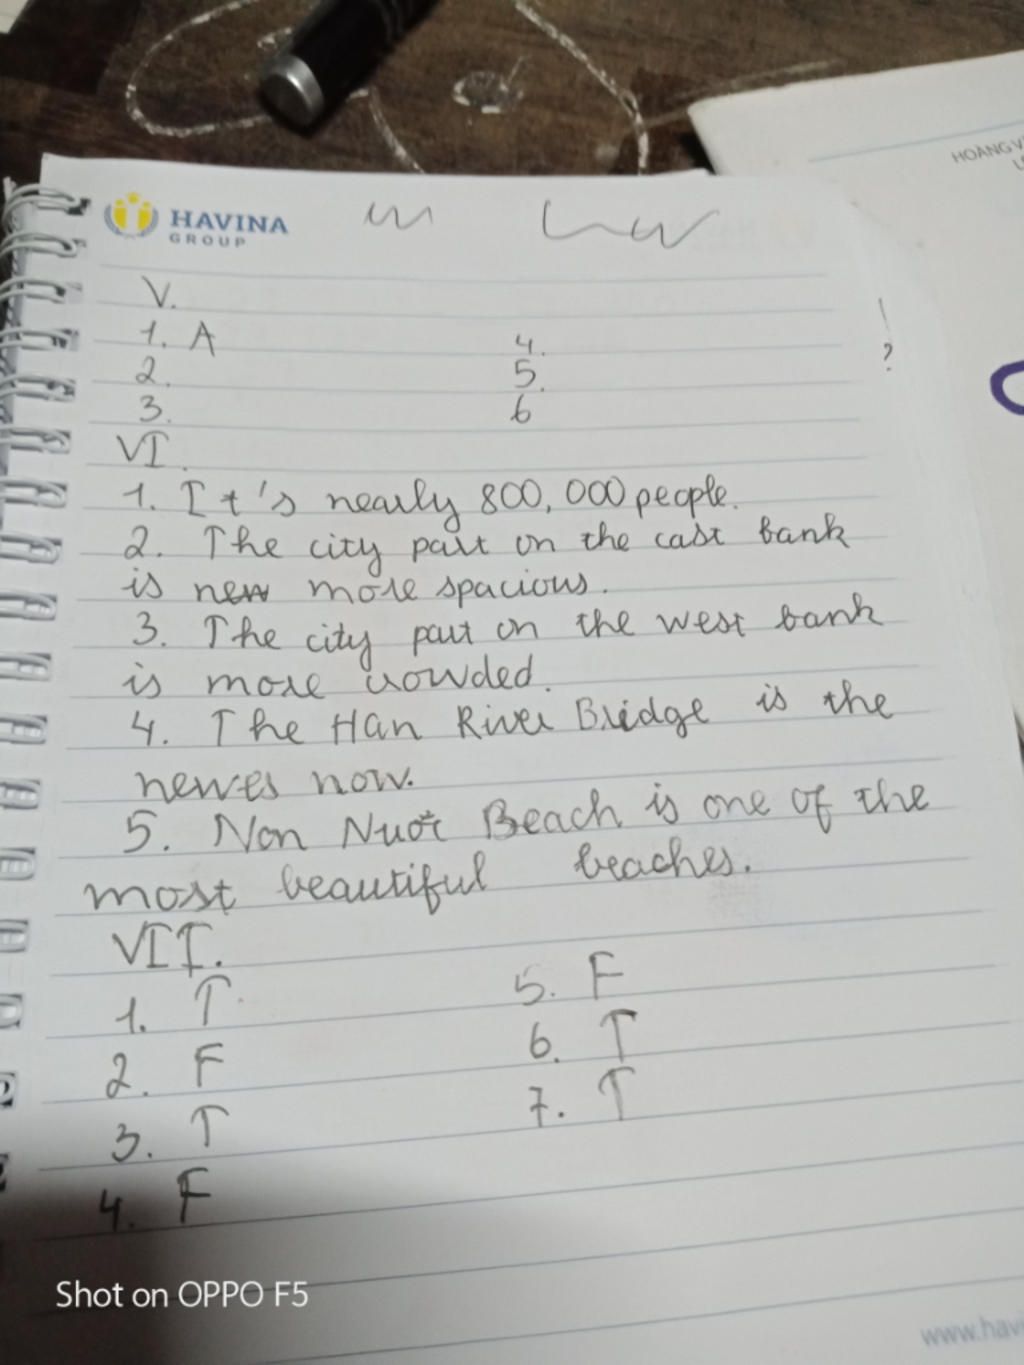 HAVINA
GROUP
HOÀNG V
V.
1. A
4.
2.
5.
3.
6
?
VI.
1. It's nearly 800,000 people.
2. The city part on the east bank
is new more spacious.
3. The city part on the west bank
is more crowded.
4. The Han River Bridge is the
newes now.
5. Non Nuoc Beach is one of the
most beautiful beaches.
VII.
1. T
5. F
2. F
6. T
3. T
7. T
4. F
Shot on OPPO F5
www.havi